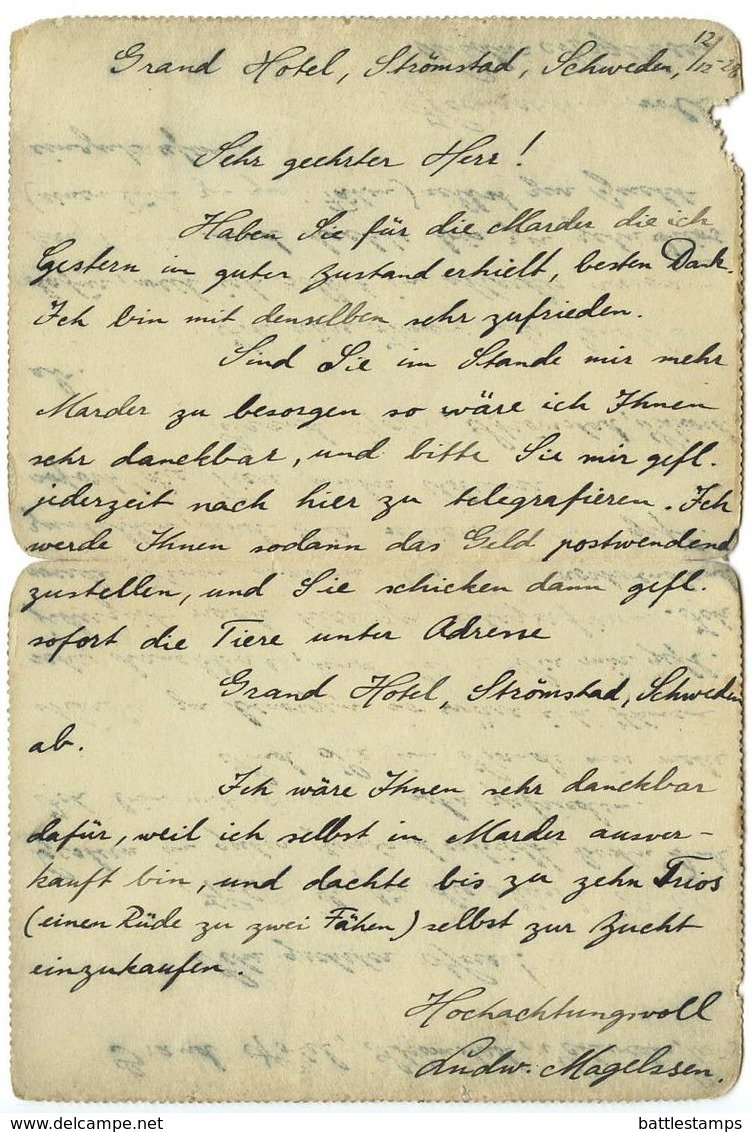 Grand Hotel, Strömstad, Schweden, 12/12-28
Sehr geehrter Herr!
Haben Sie für die Marder die ich
Gestern in guter Zustand erhielt, besten Dank.
Ich bin mit denselben sehr zufrieden.
Sind Sie im Stande mir mehr
Marder zu besorgen so wäre ich Ihnen
sehr danckbar, und bitte Sie mir gefl.
jederzeit nach hier zu telegrafieren. Ich
werde Ihnen sodann das Geld postwendend
zustellen, und Sie schicken dann gefl.
sofort die Tiere unter Adresse
Grand Hotel, Strömstad, Schweden
ab.
Ich wäre Ihnen sehr danckbar
dafür, weil ich selbst in Marder ausver-
kauft bin, und dachte bis zu zehn Trios
(einen Rüde zu zwei Fähen) selbst zur Zucht
einzukaufen.
Hochachtungsvoll
Ludw. Magelssen.
delcampe.net
battlestamps